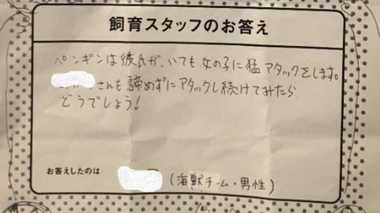 飼育スタッフのお答え
ペンギンは彼氏が、いても女の子に猛アタックをします。
さんも諦めずにアタックし続けてみたら
どうでしょう!
お答えしたのは
(海獣チーム・男性)